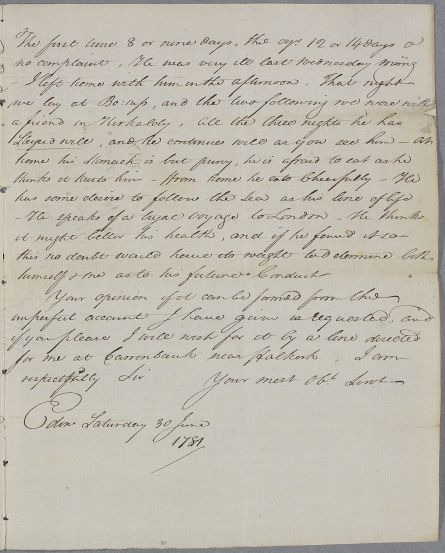 The first time 8 or nine days, the oyr 12 or 14 days &
no complaint. He was very ill last Wednesday morng
- I left home with him in the afternoon. That night
we lay at Bo:ness, and the two following we were with
a friend in Kirkaldy, all the three nights he has
Sleep'd well, and he continues well as you see him - at
home his stomach is but puny, he is afraid to eat as he
thinks it hurts him - From home he eats Chearfully - He
has some desire to follow the Sea as his line of life
- He speaks of a voyage to London - He thinks
it might better his health, and if he found it so
this no doubt would have its weight to determine both
himself & me as to his future Conduct
Your opinion if it can be formed from the
imperfect account I have given is requested, and
if you please I will wish for it by a line directed
for me at Carronbank near Falkirk. I am
respectfully Sir Your most Obt. Servt
Edinr Saturday 30 June
1781